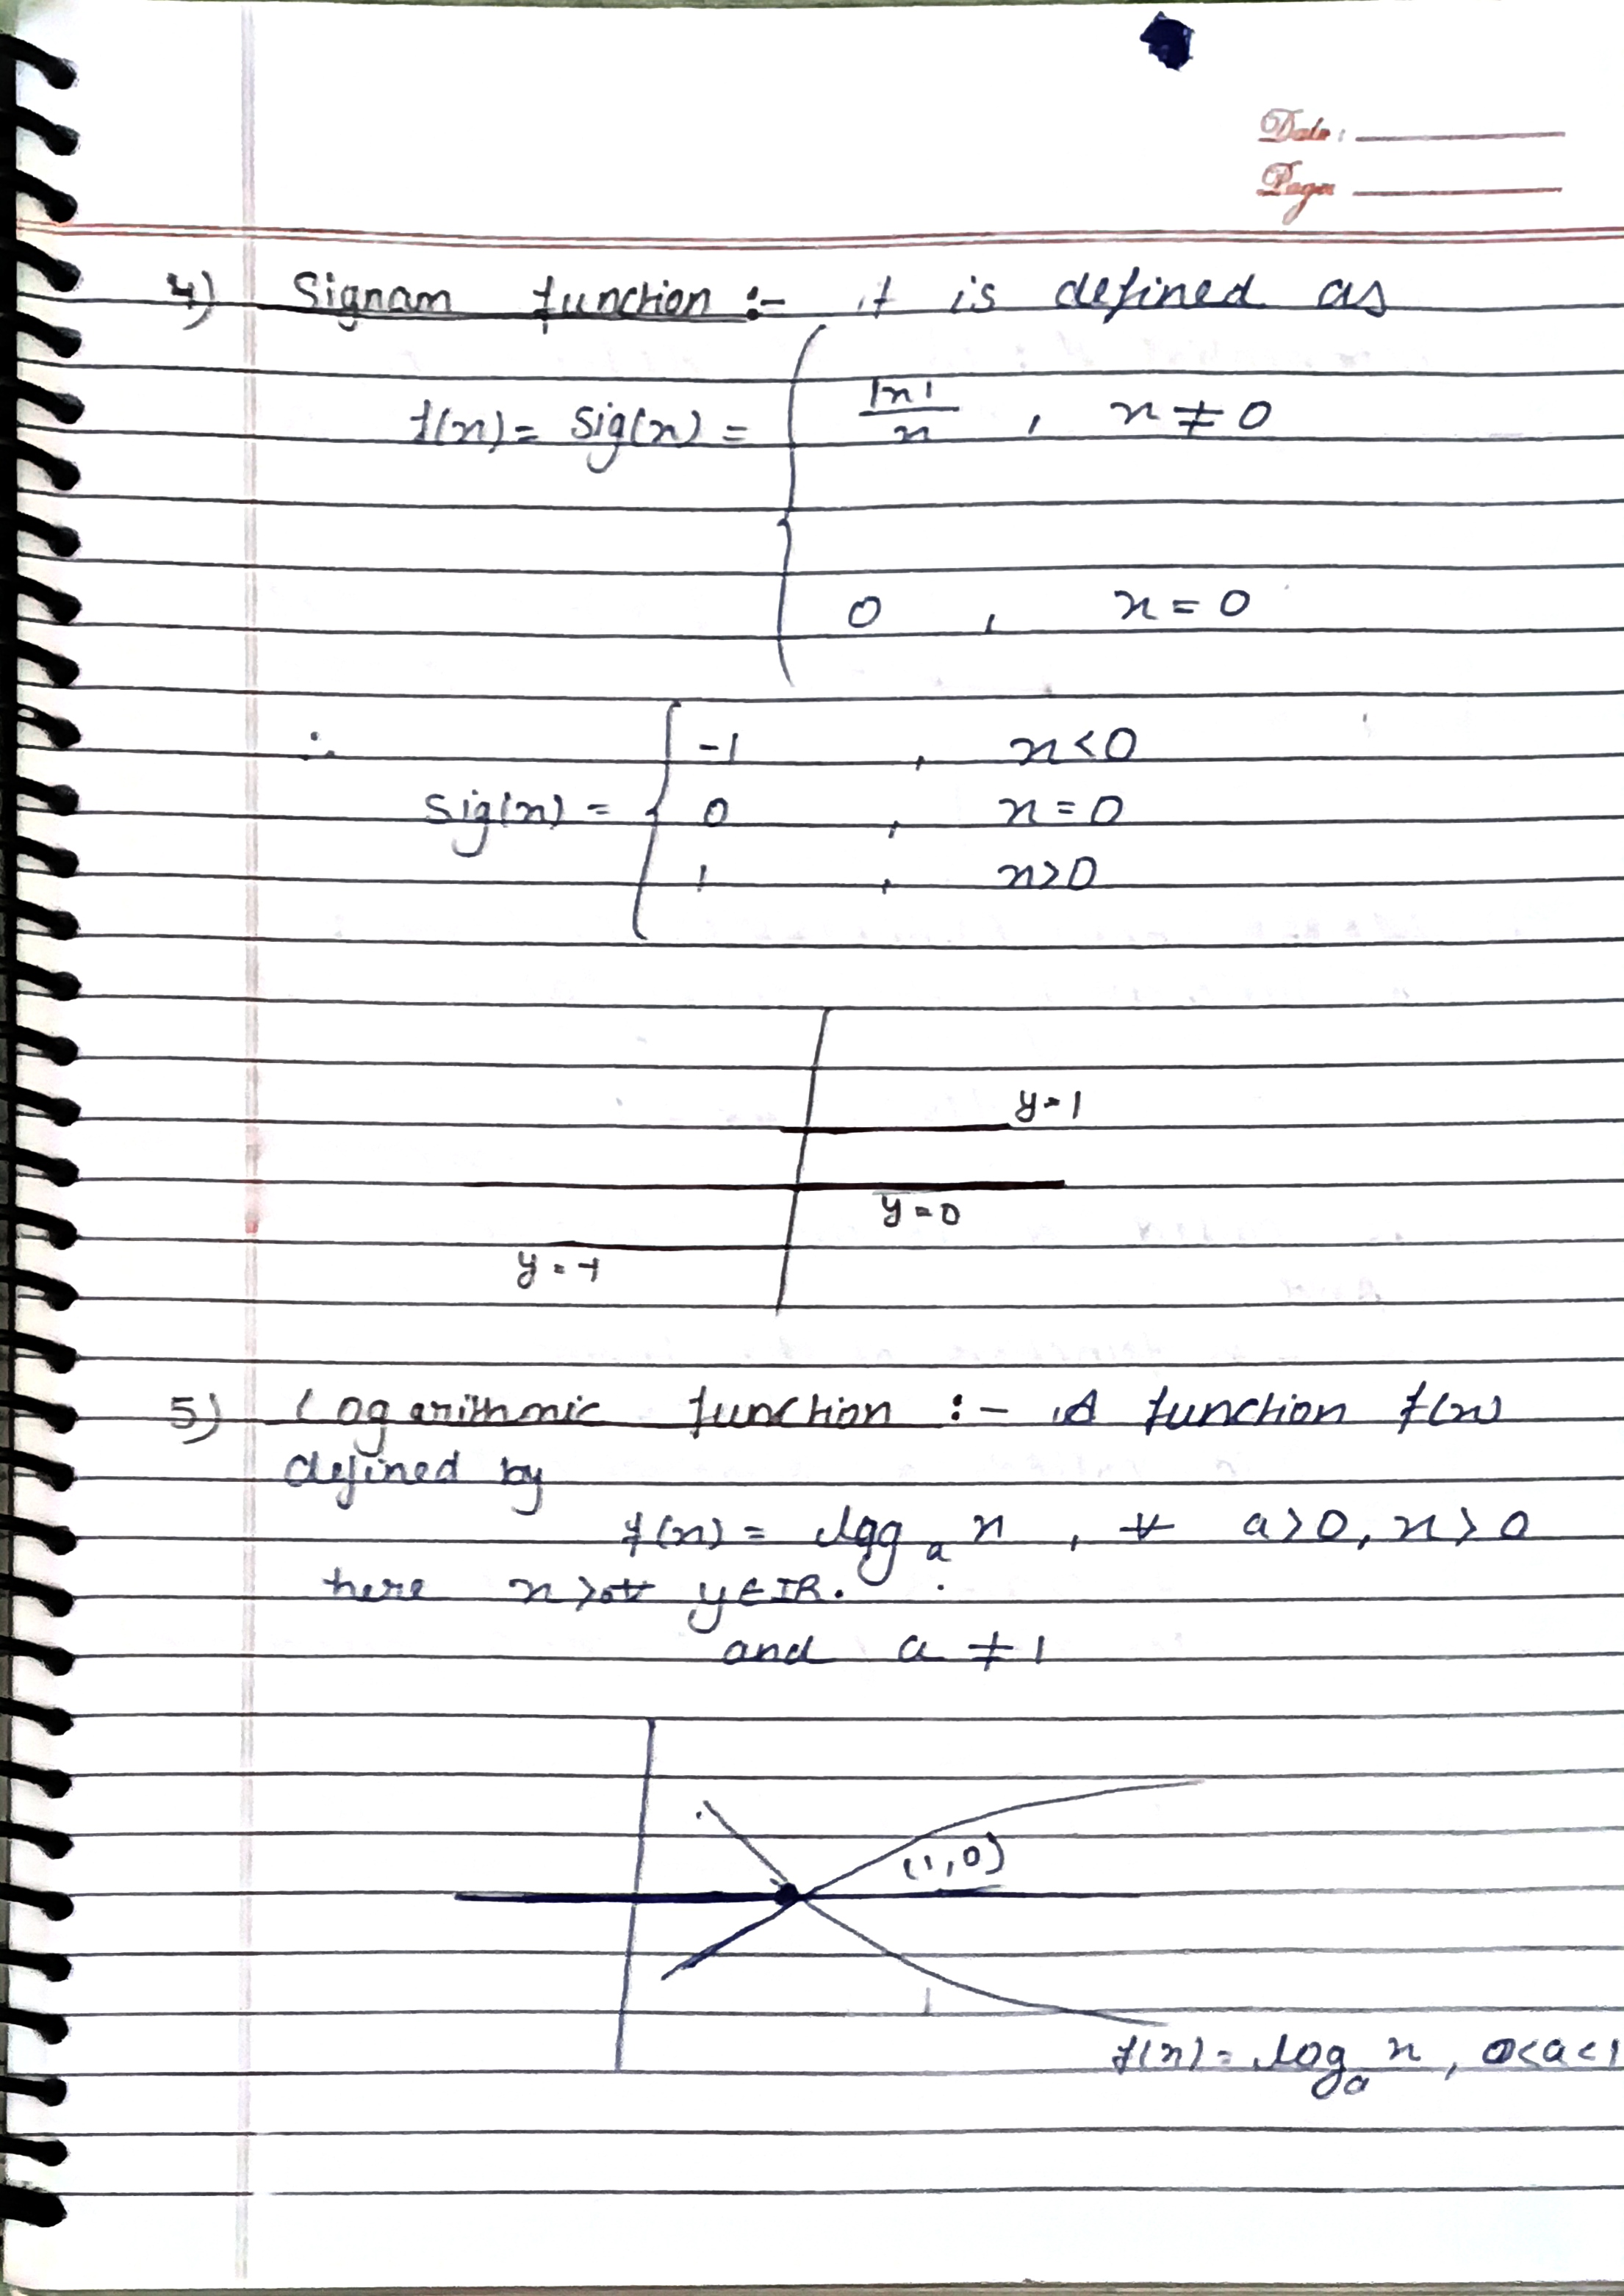 Date:
Page
4) Signam function :- it is defined as
f(x) = Sig(x) = { |x|/x , x ≠ 0
0 , x = 0
∴ -1 , x < 0
Sig(x) = { 0 , x = 0
1 , x > 0
y = 1
y = 0
y = -1
5) Logarithmic function :- A function f(x)
defined by
f(x) = log_a x , ∀ a > 0, x > 0
here x > 0 y ∈ IR.
and a ≠ 1
(1, 0)
f(x) = log_a x , 0 < a < 1